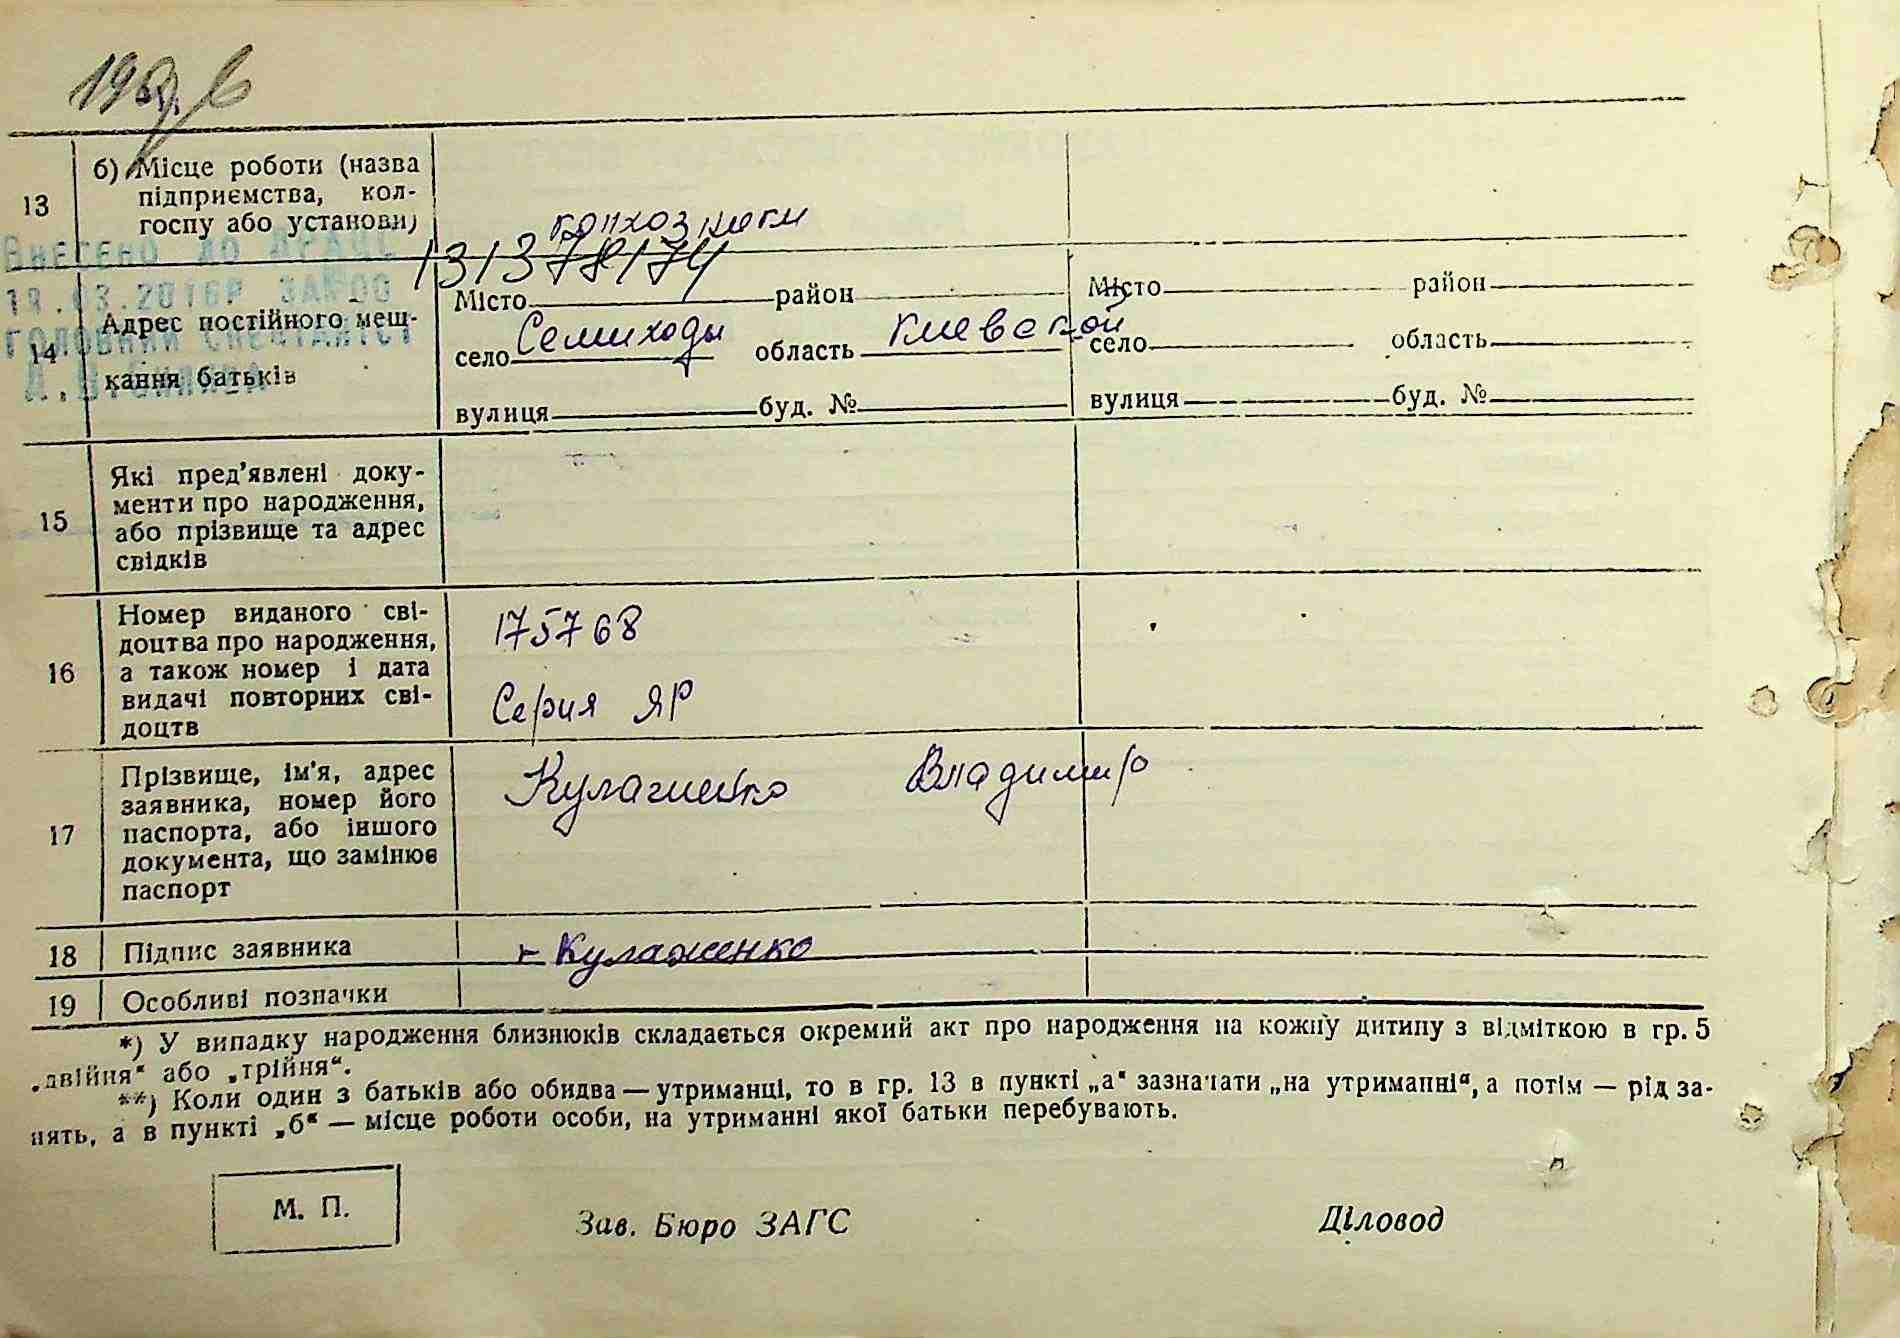 13
б) Місце роботи (назва
підприємства, кол-
госпу або установи)
колхозники
1313 78174
Внесено до ДРАЦС
19.03.2016р за №00
головний спеціаліст
14
Адрес постійного меш-
кання батьків
Місто район
село Семиходы область Киевской
вулиця буд. №
Місто район
село область
вулиця буд. №
15
Які пред'явлені доку-
менти про народження,
або прізвище та адрес
свідків
16
Номер виданого сві-
доцтва про народження,
а також номер і дата
видачі повторних сві-
доцтв
175768
Серия ЯР
17
Прізвище, ім'я, адрес
заявника, номер його
паспорта, або іншого
документа, що замінює
паспорт
Кулаженко Владимир
18 Підпис заявника
Кулаженко
19 Особливі позначки
*) У випадку народження близнюків складається окремий акт про народження на кожну дитину з відміткою в гр. 5
„двійня“ або „трійня“.
**) Коли один з батьків або обидва — утриманці, то в гр. 13 в пункті „а“ зазначати „на утриманні“, а потім — рід за-
нять, а в пункті „б“ — місце роботи особи, на утриманні якої батьки перебувають.
М. П.
Зав. Бюро ЗАГС
Діловод